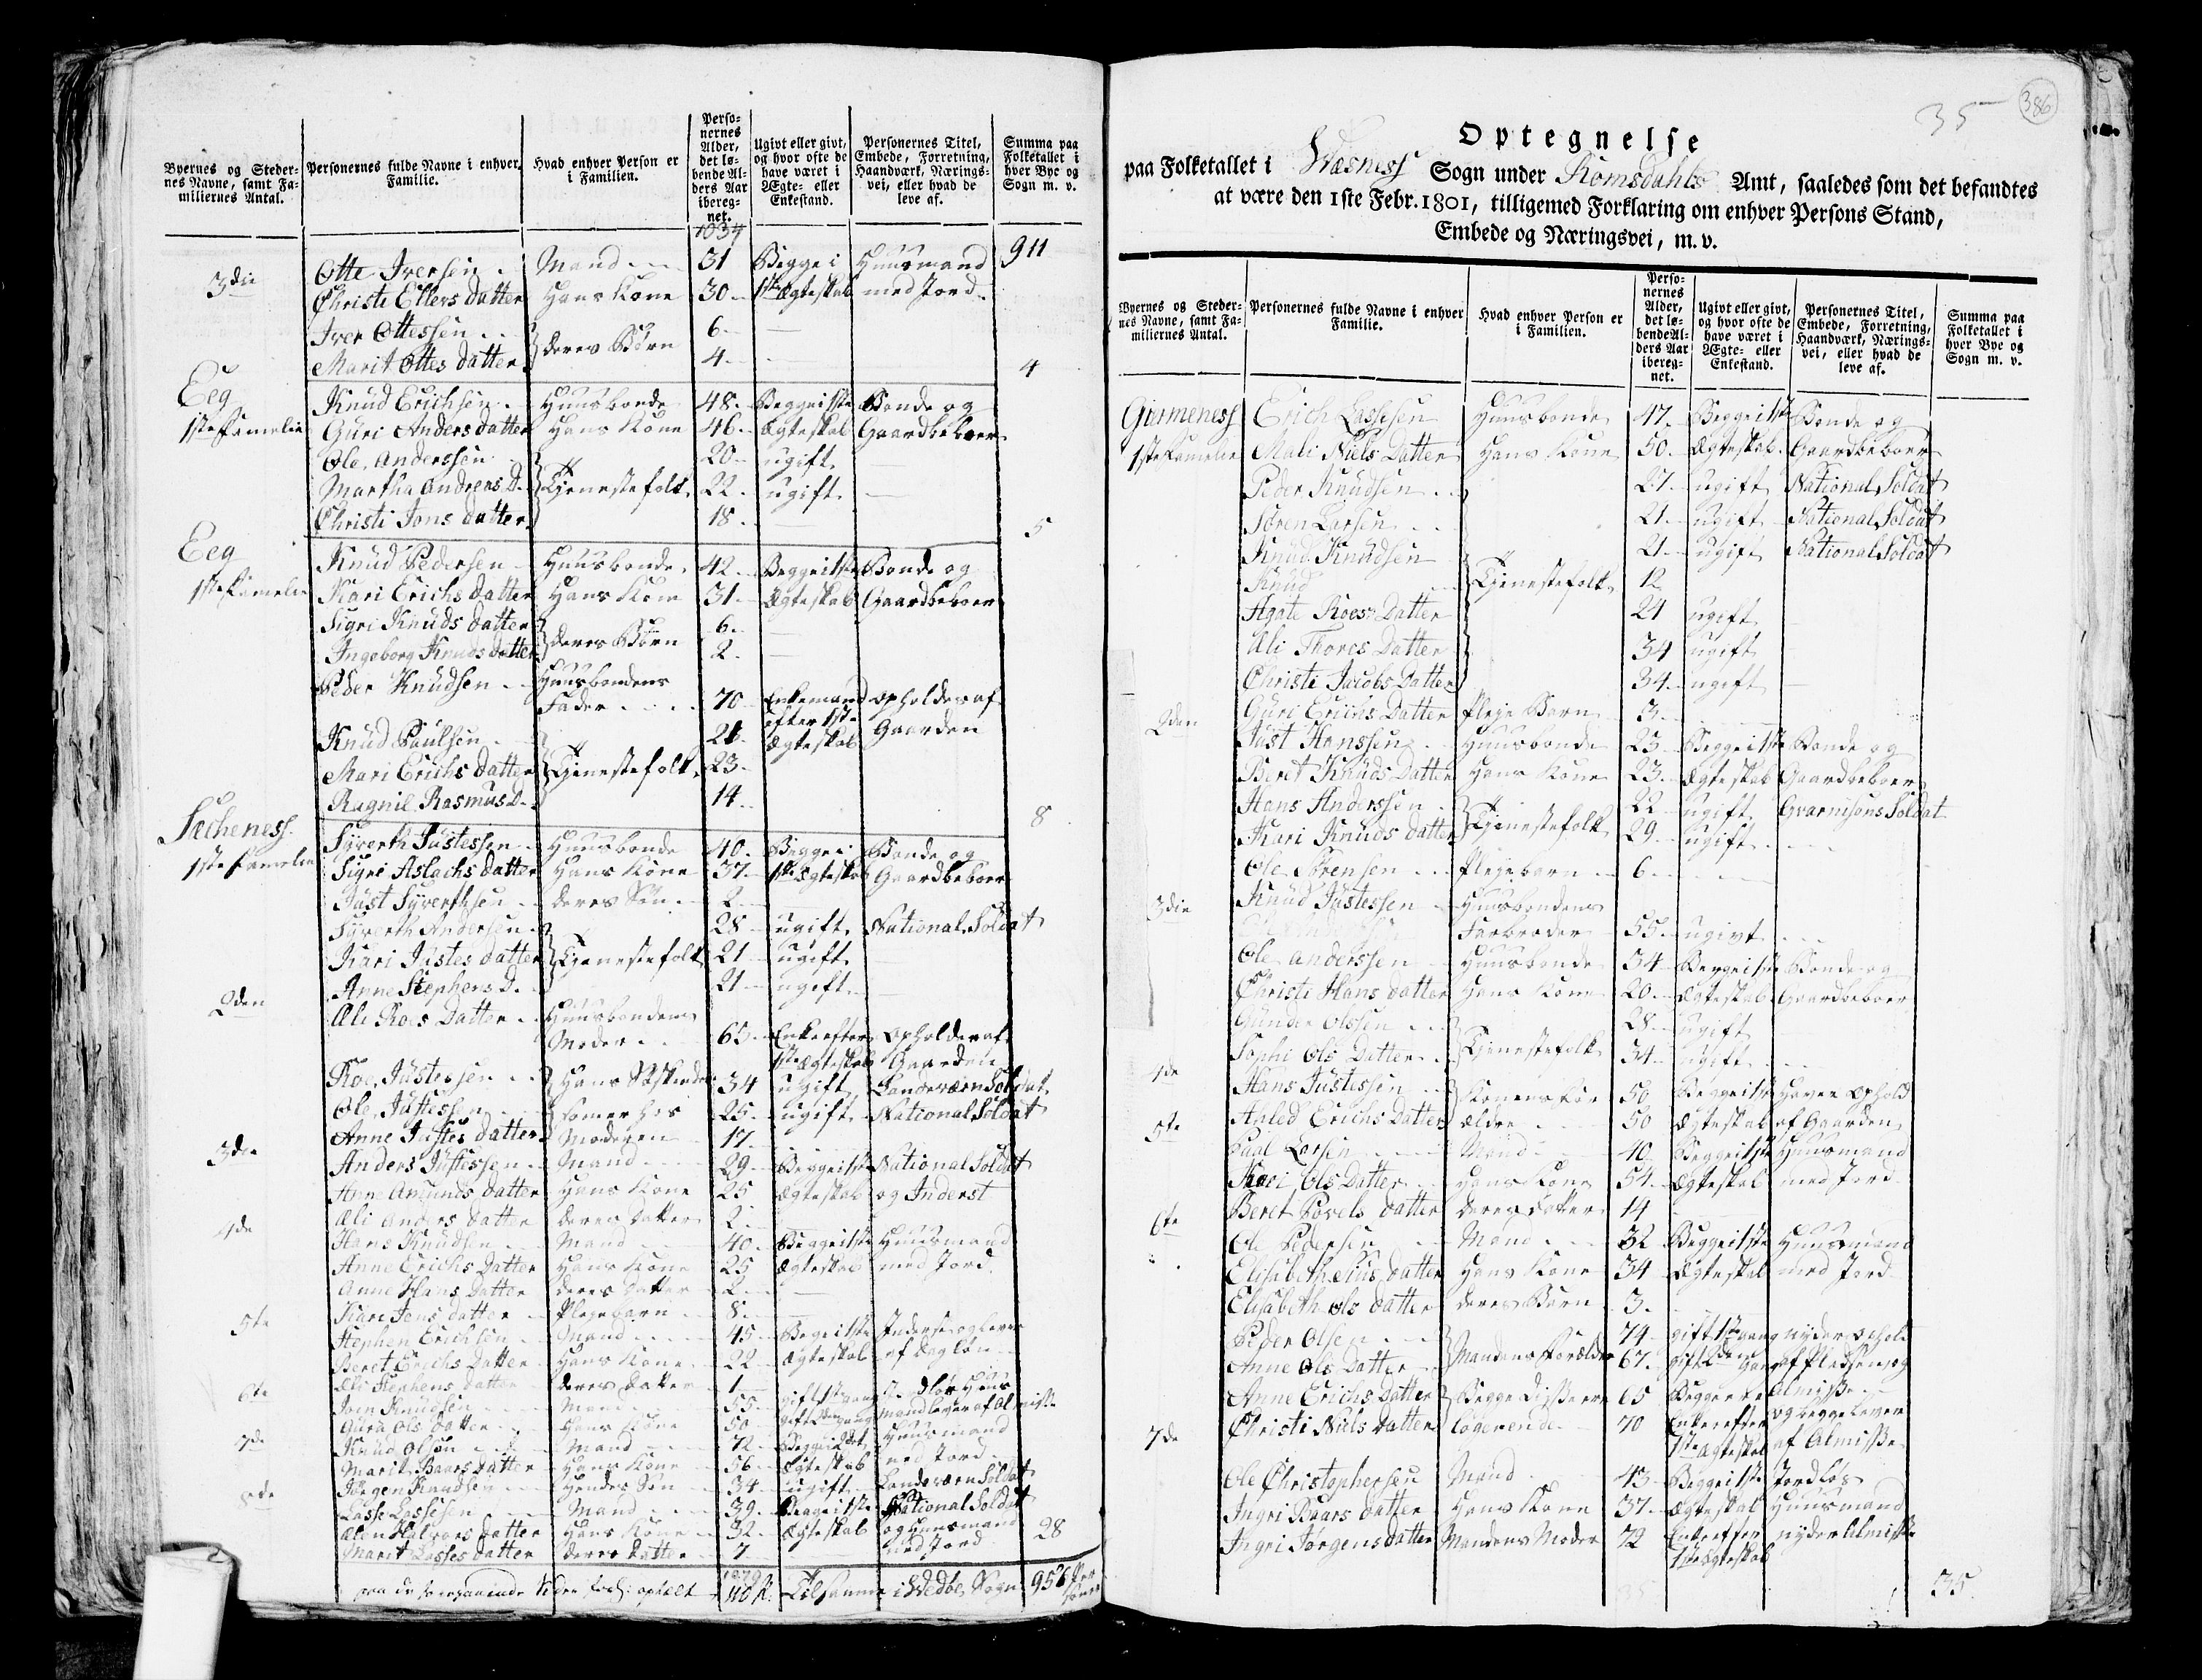 Byernes og Steder-
nes Navne, samt Fa-
miliernes Antal.
Personernes fulde Navne i enhver
Familie.
Hvad enhver Person er
i Familien.
Perso-
nernes
Alder,
det lø-
bende Al-
ders Aar
ibereg-
net.
Ugivt eller givt,
og hvor ofte de
have været i
Ægte- eller
Enkestand.
Personernes Titel,
Embede, Forretning,
Haandværk, Nærings-
vei, eller hvad de
leve af.
Summa paa
Folketallet i
hver Bye og
Sogn m. v.
1034
911
3die Otte Iversen Mand 31 Begge i Huusmand
Christi Ellers datter Hans Kone 30 1ste Ægteskab med Jord
Iver Ottessen 6
Marit Ottes datter deres Børn 4
4
Eeg Knud Erichsen Huusbonde 48 Begge i 1ste Bonde og
1ste Famelie Guri Anders datter Hans Kone 46 Ægteskab Gaardbeboer
Ole Anderssen 20 ugift
Martha Andreas D. Tjenestefolk 22 ugift
Christi Jons datter 18
5
Eeg Knud Pedersen Huusbonde 42 Begge i 1ste Bonde og
1ste Famelie Kari Erichs datter Hans Kone 31 Ægteskab Gaardbeboer
Sigri Knuds datter 6
Ingeborg Knuds datter deres Børn 2
Peder Knudsen Huusbondens
Fader 70 Enkemand opholdes af
efter 1ste
Knud Paulsen 21 Ægteskab Gaarden
Mari Erichs datter Tjenestefolk 23
Ragnil Rasmus D. 14
8
Secheness Syverth Justessen Huusbonde 40 Begge i Bonde og
1ste Famelie Sigri Aslachs datter Hans Kone 37 1ste Ægteskab Gaardbeboer
Just Syverthsen deres Søn 2
Syverth Andersen 28 ugift National Soldat
Kari Justes datter Tjenestefolk 21 ugift
Anne Stephens D. 21 ugift
2den Ali Roes Datter Huusbondens
Moder 65 Enke efter opholdes af
1ste Ægteskab Gaarden
Roe Justessen Hans Søskende 34 ugift Landeværn Soldat
Ole Justessen som er hos 25 ugift National Soldat
Anne Justes datter Moderen 17
3die Anders Justessen Mand 29 Begge i 1ste National Soldat
Anne Amunds datter Hans Kone 25 Ægteskab og Inderst
Ali Anders datter deres datter 2
4de Hans Knudsen Mand 40 Begge i 1ste Huusmand
Anne Erichs datter Hans Kone 25 Ægteskab med Jord
Anne Hans datter deres datter 2
Kari Jens datter Plejebarn 8
5te Stephen Erichsen Mand 45 Begge i 1ste Inderst og lever
Beret Erichs datter Hans Kone 22 Ægteskab af dagløn
Ali Stephens datter deres datter 1
6te Iven Knudsen Mand 55 gift 1ste gang Jordløs Huus
Gura Ols datter Hans Kone 50 gift 2den gang mand lever af Almisse
7de Knud Olsen Mand 72 Begge i 2det Huusmand
Marit Baars datter Hans Kone 56 Ægteskab med Jord
Jørgen Knudsen Hendes Søn 34 ugift Landeværn Soldat
8de Lasse Lassesen Mand 39 Begge i 1ste National Soldat
Alen Halvors datter Hans Kone 32 Ægteskab og Huusmand
Marit Lasses datter deres datter 7 med Jord
28
Tilsammen i Wedøe Sogn 956
35
386
Optegnelse
paa Folketallet i Wæsness Sogn under Romsdahls Amt, saaledes som det befandtes
at være den 1ste Febr. 1801, tilligemed Forklaring om enhver Persons Stand,
Embede og Næringsvei, m. v.
Byernes og Steder-
nes Navne, samt Fa-
miliernes Antal.
Personernes fulde Navne i enhver
Familie.
Hvad enhver Person er
i Familien.
Perso-
nernes
Alder,
det lø-
bende Al-
ders Aar
ibereg-
net.
Ugivt eller givt,
og hvor ofte de
have været i
Ægte- eller
Enkestand.
Personernes Titel,
Embede, Forretning,
Haandværk, Nærings-
vei, eller hvad de
leve af.
Summa paa
Folketallet i
hver Bye og
Sogn m. v.
Gjermeness Erich Lassesen Huusbonde 47 Begge i 1ste Bonde og
1ste Famelie Mali Niels Datter Hans Kone 50 Ægteskab Gaardbeboer
Peder Knudsen 27 ugift National Soldat
Søren Larsen 21 ugift National Soldat
Knud Knudsen 21 ugift National Soldat
Knud Tjenestefolk 12
Agate Roes Datter 24 ugift
Ali Thores Datter 34 ugift
Christi Jacobs Datter 34 ugift
Guri Erichs Datter Pleje Barn 3
2den Just Hanssen Huusbonde 23 Begge i 1ste Bonde og
Beret Knuds Datter Hans Kone 23 Ægteskab Gaardbeboer
Hans Anderssen 22 ugift Gvarnisons Soldat
Kari Knuds datter Tjenestefolk 29 ugift
Ole Sørensen Plejebarn 6
3die Knud Justessen Huusbondens
Farbroder 55 ugivt
Ole Anderssen Huusbonde 34 Begge i 1ste Bonde og
Christi Hans datter Hans Kone 20 Ægteskab Gaardbeboer
Gunder Olssen 28 ugift
Sophi Ols Datter Tjenestefolk 34 ugift
4de Hans Justessen Konens For 50 Begge i 1ste Haver Ophold
Anled Erichs Datter ældre 50 Ægteskab af Gaarden
5te Paal Larsen Mand 40 Begge i 1ste Huusmand
Kari Ols Datter Hans Kone 54 Ægteskab med Jord
Beret Povels datter deres datter 14
6te Ole Pedersen Mand 32 Begge i 1ste Huusmand
Elisabeth datter Hans Kone 34 Ægteskab med Jord
Elisabeth Ols datter deres Barn 3
Peder Olsen 74 gift 1ste gang nyder ophold
Anne Ols Datter Mandens Forældre 67 gift 2den Gang af Pladsen og
Anne Erichs Datter Begge Disse ere 65 Almisse
Christi Niels Datter logerende 70 Enke efter og begge lever
7de 1ste Ægteskab af Almisse
Ole Christophersen Mand 43 Begge i 1ste Jordløs
Ingri Baars datter Hans Kone 37 Ægteskab Huusmand
Ingri Jørgens datter Mandens Moder 72 Enke efter nyder Almisse
1ste Ægteskab
35